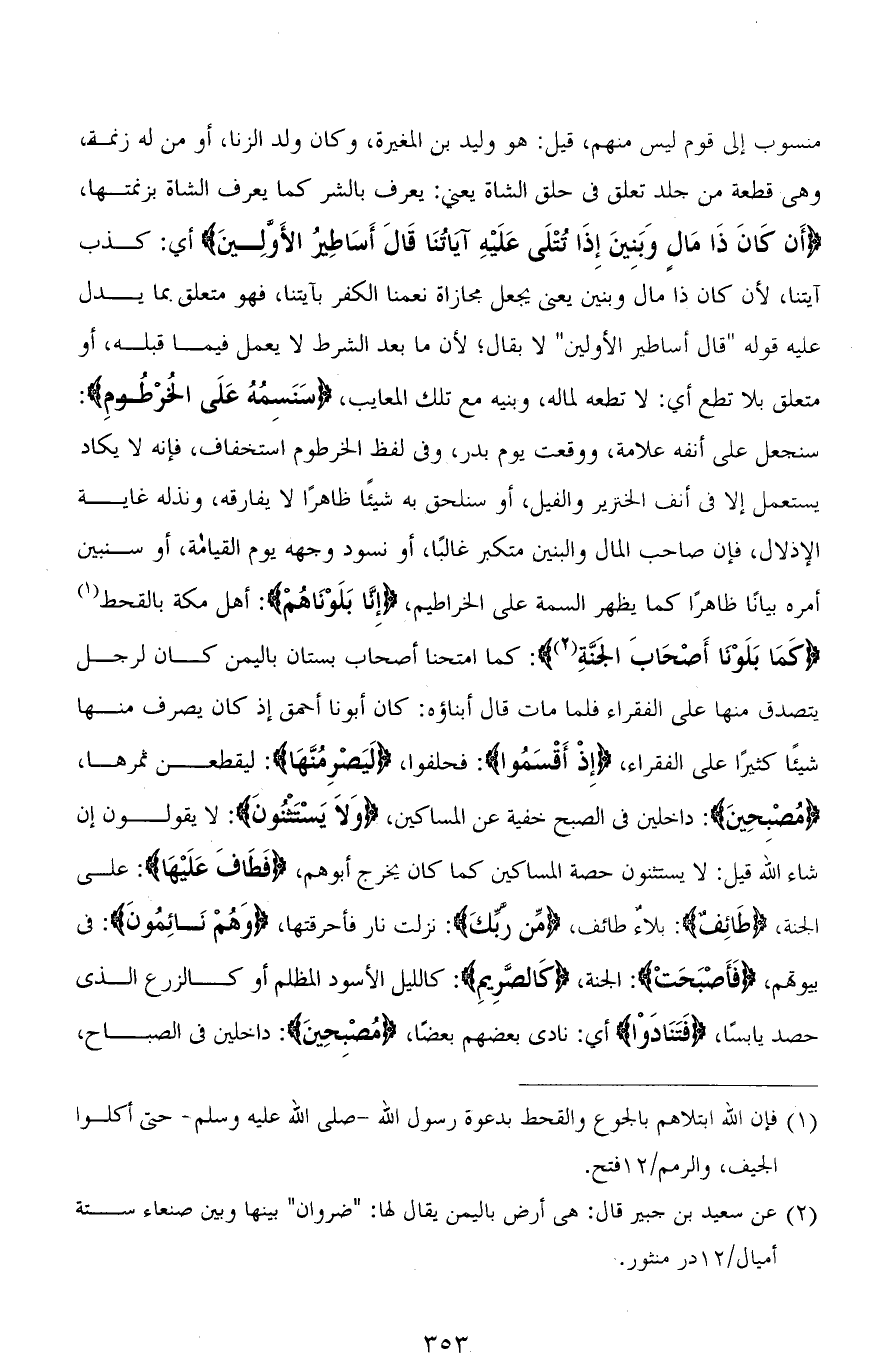 منسوب إلى قوم ليس منهم، قيل: هو وليد بن المغيرة، وكان ولد الزنا، أو من له زنمة،
وهى قطعة من جلد تعلق فى حلق الشاة يعني: يعرف بالشر كما يعرف الشاة بزنمتها،
﴿أَن كَانَ ذَا مَالٍ وَبَنِينَ إِذَا تُتْلَى عَلَيْهِ آيَاتُنَا قَالَ أَسَاطِيرُ الأَوَّلِينَ﴾ أي: كذب
آيتنا، لأن كان ذا مال وبنين يعنى يجعل مجازاة نعمنا الكفر بآيتنا، فهو متعلق بما يدل
عليه قوله "قال أساطير الأولين" لا بقال؛ لأن ما بعد الشرط لا يعمل فيما قبله، أو
متعلق بلا تطع أي: لا تطعه لماله، وبنيه مع تلك المعايب، ﴿سَنَسِمُهُ عَلَى الخُرْطُومِ﴾:
سنجعل على أنفه علامة، ووقعت يوم بدر، وفى لفظ الخرطوم استخفاف، فإنه لا يكاد
يستعمل إلا فى أنف الخنزير والفيل، أو سنلحق به شيئًا ظاهرًا لا يفارقه، ونذله غاية
الإذلال، فإن صاحب المال والبنين متكبر غالبًا، أو نسود وجهه يوم القيامة، أو سنبين
أمره بيانًا ظاهرًا كما يظهر السمة على الخراطيم، ﴿إِنَّا بَلَوْنَاهُمْ﴾: أهل مكة بالقحط(١)
﴿كَمَا بَلَوْنَا أَصْحَابَ الجَنَّةِ(٢)﴾: كما امتحنا أصحاب بستان باليمن كان لرجل
يتصدق منها على الفقراء فلما مات قال أبناؤه: كان أبونا أحمق إذ كان يصرف منها
شيئًا كثيرًا على الفقراء، ﴿إِذْ أَقْسَمُوا﴾: فحلفوا، ﴿لَيَصْرِمُنَّهَا﴾: ليقطعن ثمرها،
﴿مُصْبِحِينَ﴾: داخلين فى الصبح خفية عن المساكين، ﴿وَلاَ يَسْتَثْنُونَ﴾: لا يقولون إن
شاء الله قيل: لا يستثنون حصة المساكين كما كان يخرج أبوهم، ﴿فَطَافَ عَلَيْهَا﴾: على
الجنة، ﴿طَائِفٌ﴾: بلاءٌ طائف، ﴿مِّن رَّبِّكَ﴾: نزلت نار فأحرقتها، ﴿وَهُمْ نَائِمُونَ﴾: فى
بيوتهم، ﴿فَأَصْبَحَتْ﴾: الجنة، ﴿كَالصَّرِيمِ﴾: كالليل الأسود المظلم أو كالزرع الذى
حصد يابسًا، ﴿فَتَنَادَوْا﴾ أي: نادى بعضهم بعضًا، ﴿مُصْبِحِينَ﴾: داخلين فى الصباح،
(١) فإن الله ابتلاهم بالجوع والقحط بدعوة رسول الله -صلى الله عليه وسلم- حتى أكلوا
الجيف، والرمم/١٢فتح.
(٢) عن سعيد بن جبير قال: هى أرض باليمن يقال لها: "ضروان" بينها وبين صنعاء ستة
أميال/١٢در منثور.
٣٥٣